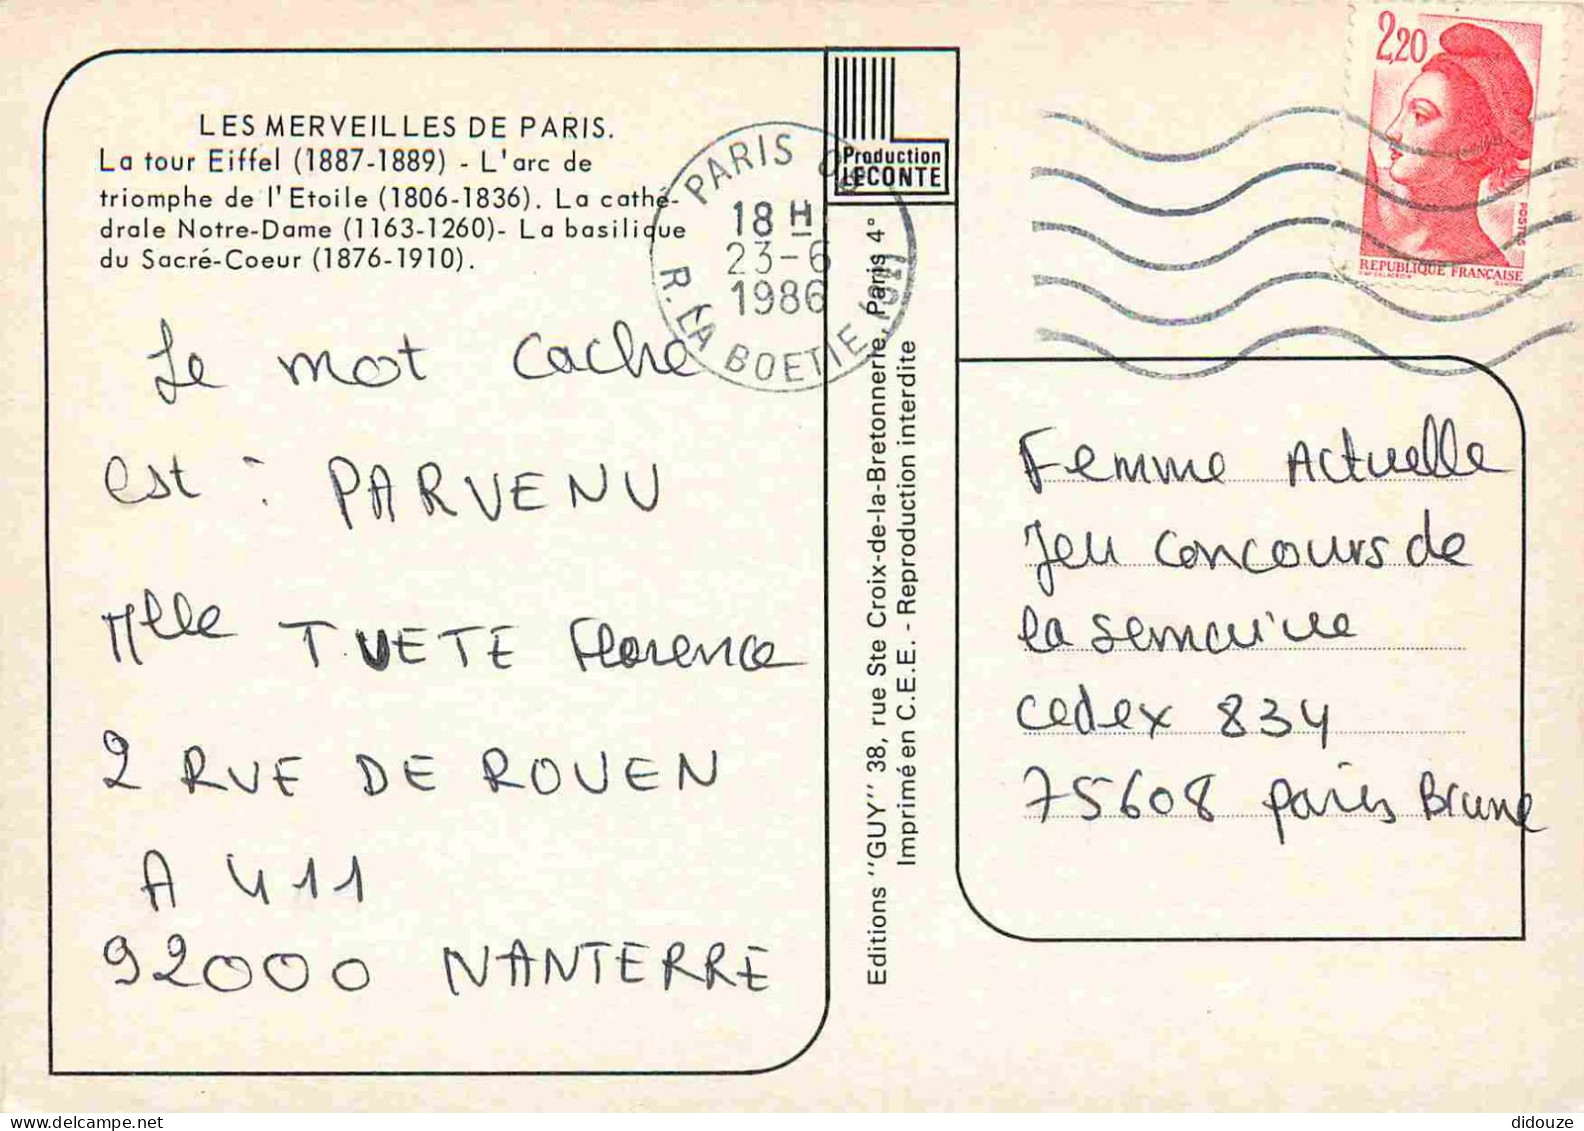 LES MERVEILLES DE PARIS.
La tour Eiffel (1887-1889) - L'arc de
triomphe de l'Etoile (1806-1836). La cathé-
drale Notre-Dame (1163-1260)- La basilique
du Sacré-Coeur (1876-1910).
Le mot caché
est : PARVENU
Mlle TUETE Florence
2 RUE DE ROUEN
A 411
92000 NANTERRE
PARIS
18 H
23-6
1986
R. LA BOETIE
Production
LECONTE
Editions "GUY" 38, rue Ste Croix-de-la-Bretonnerie, Paris 4°
Imprimé en C.E.E. - Reproduction interdite
2,20
POSTES
REPUBLIQUE FRANÇAISE
Femme Actuelle
Jeu concours de
la semaine
cedex 834
75608 paris Brune
didouze